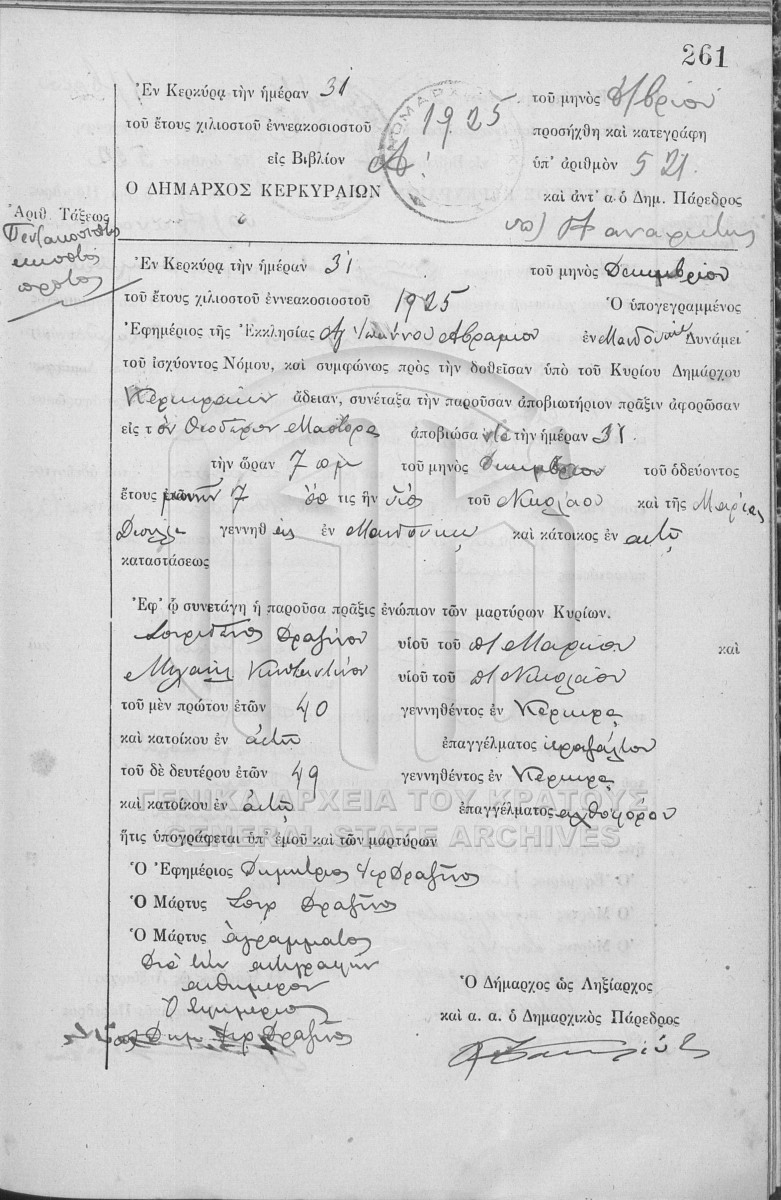 261
Ἐν Κερκύρᾳ τὴν ἡμέραν 31 τοῦ μηνὸς Δ/βρίου
τοῦ ἔτους χιλιοστοῦ ἐννεακοσιοστοῦ 1925 προσήχθη καὶ κατεγράφη
εἰς Βιβλίον Α! ὑπ' ἀριθμὸν 521
Ὁ ΔΗΜΑΡΧΟΣ ΚΕΡΚΥΡΑΙΩΝ καὶ ἀντ' α ὁ Δημ. Πάρεδρος
Ἀριθ. Τάξεως
Πεντακοσιοστὸς
εικοστὸς
πρῶτος
Ἐν Κερκύρᾳ τὴν ἡμέραν 31 τοῦ μηνὸς Δεκεμβρίου
τοῦ ἔτους χιλιοστοῦ ἐννεακοσιοστοῦ 1925 Ὁ ὑπογεγραμμένος
Ἐφημέριος τῆς Ἐκκλησίας Ἁγ Ἰωάννου Αβραμίου ἐν Μανδουκίῳ Δυνάμει
τοῦ ἰσχύοντος Νόμου, καὶ συμφώνως πρὸς τὴν δοθεῖσαν ὑπὸ τοῦ Κυρίου Δημάρχου
Κερκυραίων ἄδειαν, συνέταξα τὴν παροῦσαν ἀποβιωτήριον πρᾶξιν ἀφορῶσαν
εἰς τ όν Θεόδωρον Μάστορα ἀποβιώσαντα τὴν ἡμέραν 31
τὴν ὥραν 7 πμ τοῦ μηνὸς Δεκεμβρίου τοῦ ὁδεύοντος
ἔτους μηνῶν 7 ὅς τις ἦν υἱὸς τοῦ Νικολάου καὶ τῆς Μαρίας
γεννηθ εὶς ἐν Μανδούκι καὶ κάτοικος ἐν αὐτῷ
καταστάσεως
Ἐφ' ᾧ συνετάγη ἡ παροῦσα πρᾶξις ἐνώπιον τῶν μαρτύρων Κυρίων.
Σπιρίδωνος Δραζίνου υἱοῦ τοῦ π/ Μαρίνου καὶ
Μιχαὴλ υἱοῦ τοῦ π/ Νικολάου
τοῦ μὲν πρώτου ἐτῶν 40 γεννηθέντος ἐν Κέρκυρᾳ
καὶ κατοίκου ἐν αὐτῷ ἐπαγγέλματος
τοῦ δὲ δευτέρου ἐτῶν 49 γεννηθέντος ἐν Κέρκυρᾳ
καὶ κατοίκου ἐν αὐτῷ ἐπαγγέλματος ἀχθοφόρου
ΓΕΝΙΚΑ ΑΡΧΕΙΑ ΤΟΥ ΚΡΑΤΟΥΣ
GENERAL STATE ARCHIVES
ἥτις ὑπογράφεται ὑπ' ἐμοῦ καὶ τῶν μαρτύρων
Ὁ Ἐφημέριος Δημήτριος Ἱερ Δραζῖνος
Ὁ Μάρτυς Σπιρ Δραζῖνος
Ὁ Μάρτυς ἀγράμματος
Διὰ τὴν ἀντιγραφὴν
αὐθημερὸν
Ὁ Ἐφημέριος
Δημ Ἱερ Δραζῖνος
Ὁ Δήμαρχος ὡς Ληξίαρχος
καὶ α. α. ὁ Δημαρχικὸς Πάρεδρος